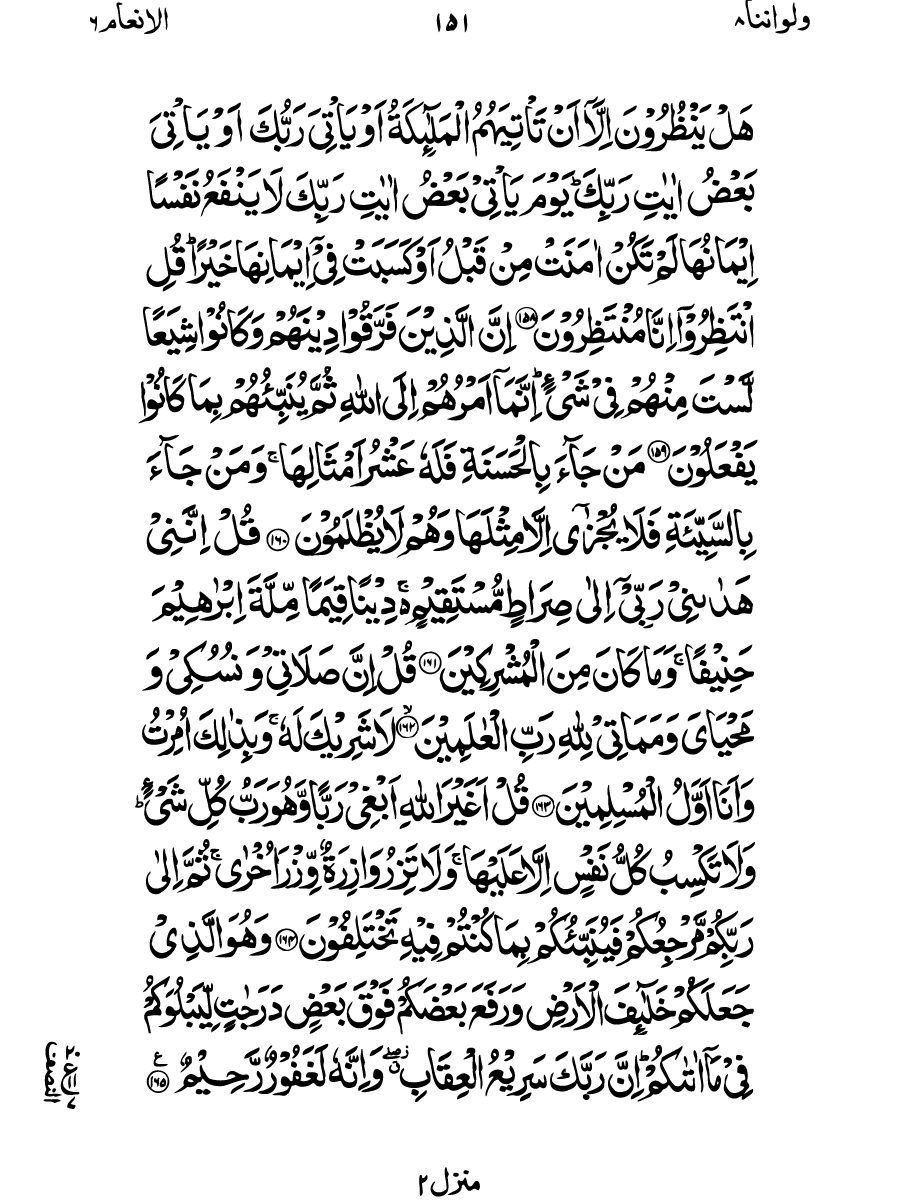 ولواننا۸ ۱۵۱ الانعام۶
هَلۡ يَنۡظُرُوۡنَ اِلَّاۤ اَنۡ تَاۡتِيَهُمُ الۡمَلٰٓٮِٕكَةُ اَوۡ يَاۡتِىَ رَبُّكَ اَوۡ يَاۡتِىَ
بَعۡضُ اٰيٰتِ رَبِّكَ‌ؕ يَوۡمَ يَاۡتِىۡ بَعۡضُ اٰيٰتِ رَبِّكَ لَا يَنۡفَعُ نَفۡسًا
اِيۡمَانُهَا لَمۡ تَكُنۡ اٰمَنَتۡ مِنۡ قَبۡلُ اَوۡ كَسَبَتۡ فِىۡۤ اِيۡمَانِهَا خَيۡرًا‌ؕ قُلِ
انْتَظِرُوۡۤا اِنَّا مُنۡتَظِرُوۡنَ ﴿۱۵۸﴾ اِنَّ الَّذِيۡنَ فَرَّقُوۡا دِيۡنَهُمۡ وَكَانُوۡا شِيَعًا
لَّسۡتَ مِنۡهُمۡ فِىۡ شَىۡءٍ‌ؕ اِنَّمَاۤ اَمۡرُهُمۡ اِلَى اللّٰهِ ثُمَّ يُنَبِّئُهُمۡ بِمَا كَانُوۡا
يَفۡعَلُوۡنَ ﴿۱۵۹﴾ مَنۡ جَآءَ بِالۡحَسَنَةِ فَلَهٗ عَشۡرُ اَمۡثَالِهَا‌ۚ وَمَنۡ جَآءَ
بِالسَّيِّئَةِ فَلَا يُجۡزٰٓى اِلَّا مِثۡلَهَا وَهُمۡ لَا يُظۡلَمُوۡنَ ﴿۱۶۰﴾ قُلۡ اِنَّنِىۡ
هَدٰٮنِىۡ رَبِّىۡۤ اِلٰى صِرَاطٍ مُّسۡتَقِيۡمٍۚ دِيۡنًا قِيَمًا مِّلَّةَ اِبۡرٰهِيۡمَ
حَنِيۡفًا‌ۚ وَمَا كَانَ مِنَ الۡمُشۡرِكِيۡنَ ﴿۱۶۱﴾ قُلۡ اِنَّ صَلَاتِىۡ وَنُسُكِىۡ وَ
مَحۡيَاىَ وَمَمَاتِىۡ لِلّٰهِ رَبِّ الۡعٰلَمِيۡنَۙ ﴿۱۶۲﴾ لَا شَرِيۡكَ لَهٗ‌ۚ وَبِذٰلِكَ اُمِرۡتُ
وَاَنَا اَوَّلُ الۡمُسۡلِمِيۡنَ ﴿۱۶۳﴾ قُلۡ اَغَيۡرَ اللّٰهِ اَبۡغِىۡ رَبًّا وَّهُوَ رَبُّ كُلِّ شَىۡءٍ‌ؕ
وَلَا تَكۡسِبُ كُلُّ نَفۡسٍ اِلَّا عَلَيۡهَا‌ۚ وَلَا تَزِرُ وَازِرَةٌ وِّزۡرَ اُخۡرٰى‌ۚ ثُمَّ اِلٰى
رَبِّكُمۡ مَّرۡجِعُكُمۡ فَيُنَبِّئُكُمۡ بِمَا كُنۡتُمۡ فِيۡهِ تَخۡتَلِفُوۡنَ ﴿۱۶۴﴾ وَهُوَ الَّذِىۡ
جَعَلَكُمۡ خَلٰٓٮِٕفَ الۡاَرۡضِ وَرَفَعَ بَعۡضَكُمۡ فَوۡقَ بَعۡضٍ دَرَجٰتٍ لِّيَبۡلُوَكُمۡ
فِىۡ مَاۤ اٰتٰٮكُمۡ‌ؕ اِنَّ رَبَّكَ سَرِيۡعُ الۡعِقَابِ‌ۖ وَاِنَّهٗ لَغَفُوۡرٌ رَّحِيۡمٌ ﴿۱۶۵﴾ ع
النصف
منزل۲